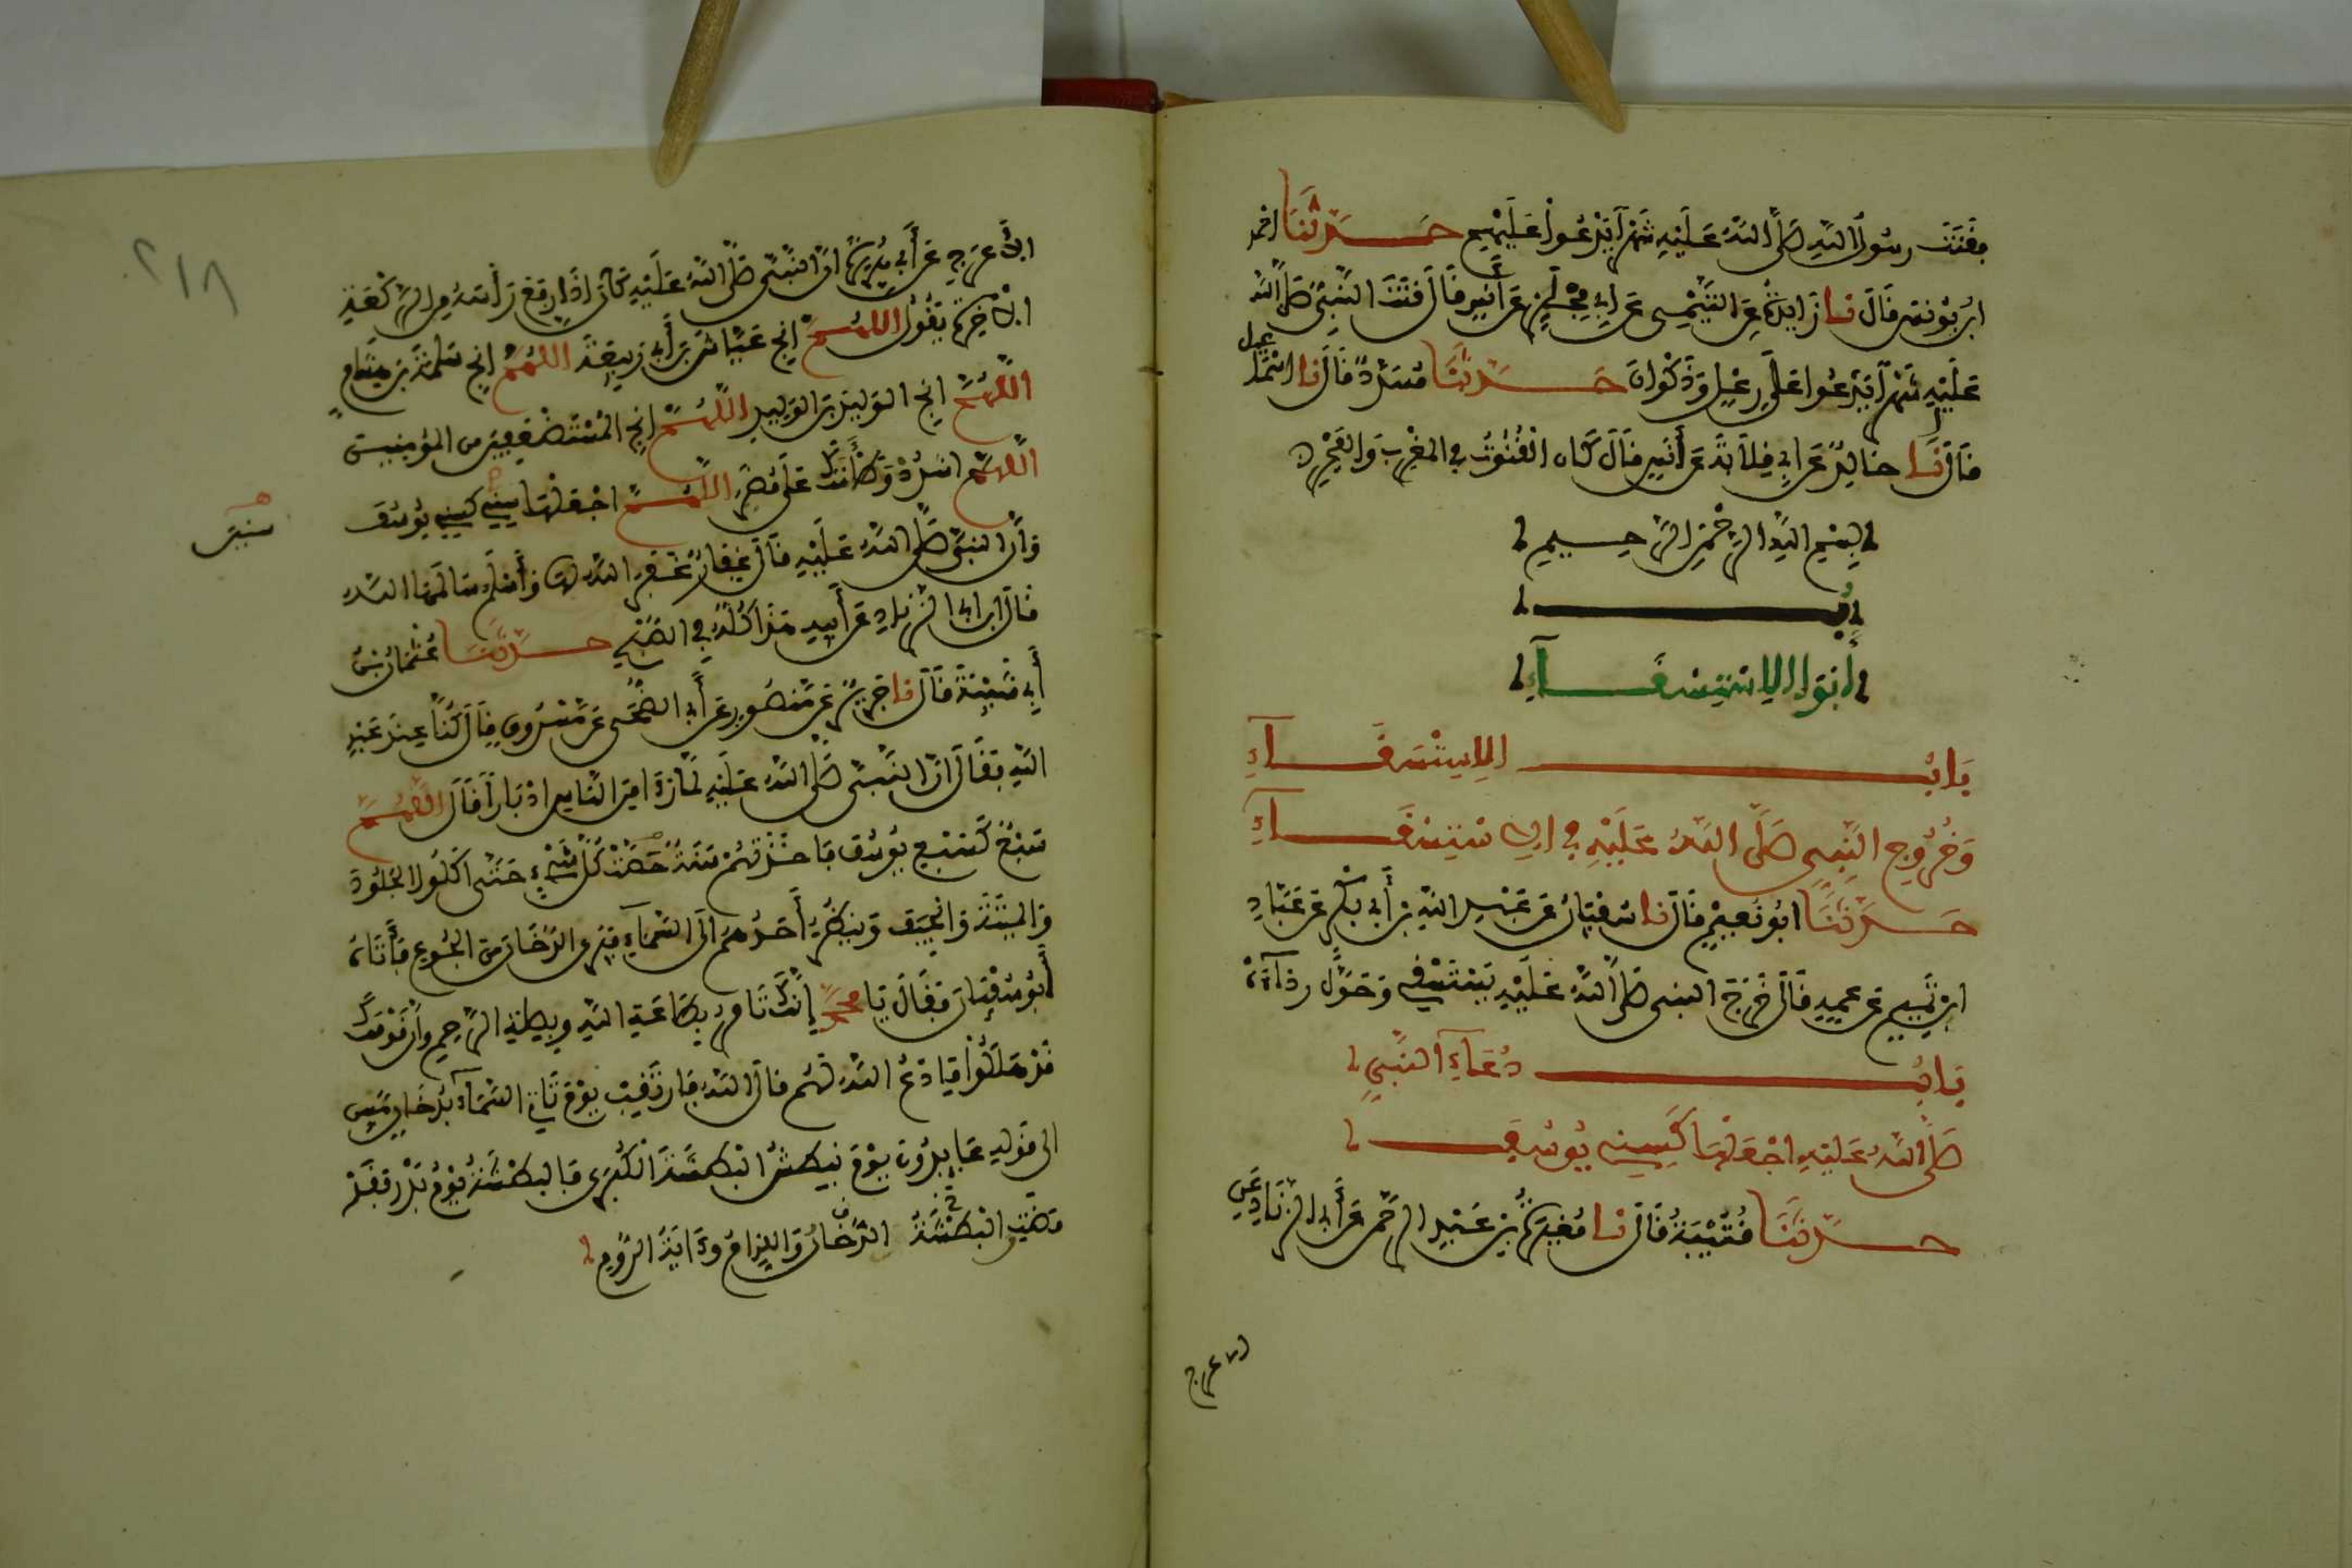 فقنت رسول الله صلى الله عليه شهرا يدعوا عليهم حدثنا احمد
ابن يونس قال نا زايدة عن التيمي عن ابي مجلز عن أنس قال قنت النبي صلى الله
عليه شهرا يدعوا على رعل وذكوان حدثنا مسدد قال نا اسمعيل
قال نا خالد عن ابي قلابة عن أنس قال كان القنوت في المغرب والفجر
بسم الله الرحمن الرحيم
أبواب الاستسقاء
باب الاستسقاء
وخروج النبي صلى الله عليه في الاستسقاء
حدثنا ابو نعيم قال نا سفيان عن عبد الله بن أبي بكر عن عباد
ابن تميم عن عمه قال خرج النبي صلى الله عليه يستسقي وحول رداءه
باب دعاء النبي
صلى الله عليه اجعلها كسني يوسف
حدثنا قتيبة قال نا مغيرة بن عبد الرحمن عن أبي الزناد عن
الاعرج
٢١٨
الأعرج عن أبي هريرة ان النبي صلى الله عليه كان اذا رفع رأسه من الركعة
الاخرة يقول اللهم انج عياش بن أبي ربيعة اللهم انج سلمة بن هشام
اللهم انج الوليد بن الوليد اللهم انج المستضعفين من المؤمنين
اللهم اشدد وطأتك على مضر اللهم اجعلها سني كسني يوسف
سنين
وأن النبي صلى الله عليه قال غفار غفر الله لها وأسلم سالمها الله
قال ابن ابي الزناد عن أبيه هذا كله في الصبح حدثنا عثمان بن
أبي شيبة قال نا جرير عن منصور عن أبي الضحى عن مسروق قال كنا عند عبد
الله فقال ان النبي صلى الله عليه لما رأى من الناس ادبارا قال اللهم
سبع كسبع يوسف فاخذتهم سنة حصت كل شيء حتى اكلوا الجلود
والميتة والجيف وينظر أحدهم الى السماء فيرى الدخان من الجوع فأتاه
أبو سفيان فقال يا محمد إنك تامر بطاعة الله وبصلة الرحم وأن قومك
قد هلكوا فادع الله لهم قال الله فارتقب يوم تاتي السماء بدخان مبين
الى قوله عايدون يوم نبطش البطشة الكبرى فالبطشة يوم بدر فقد
مضت البطشة الدخان واللزام وءاية الروم